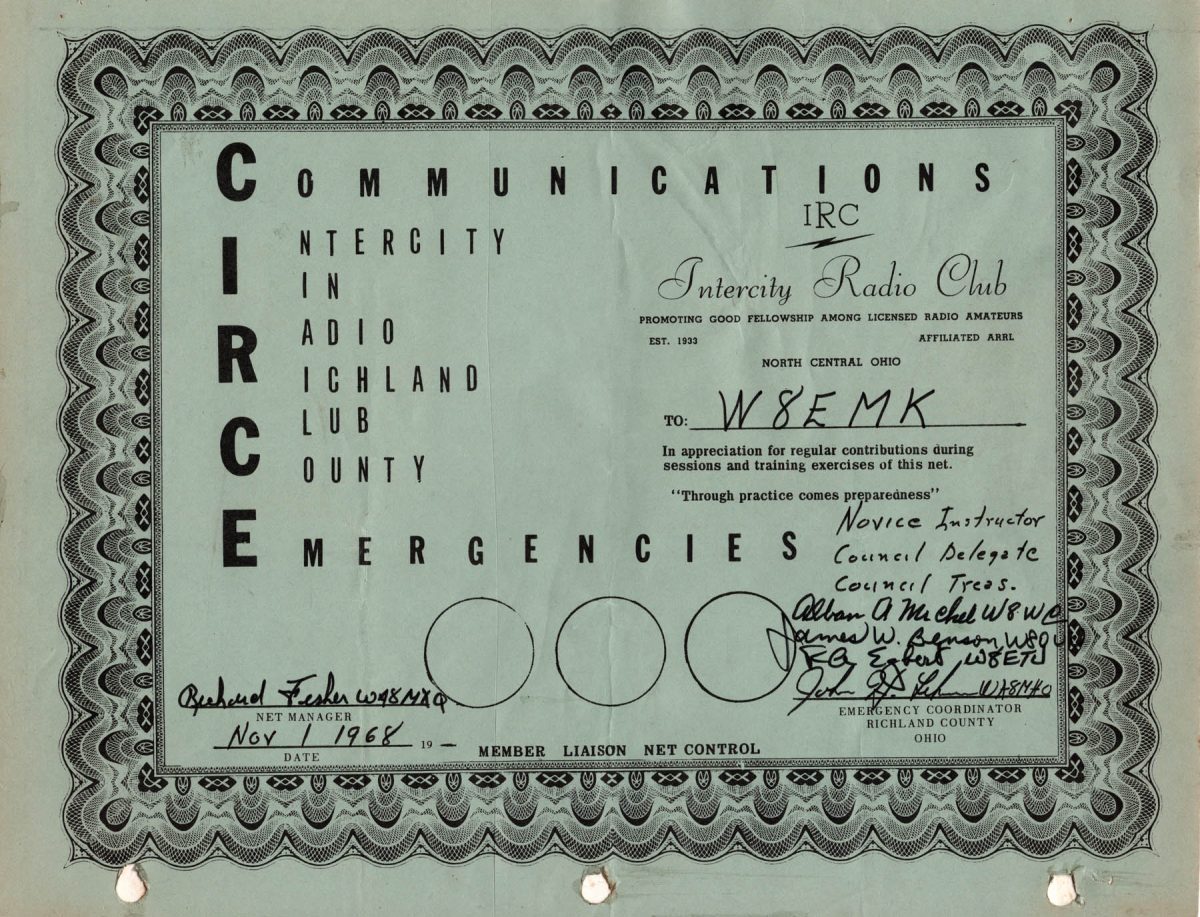 COMMUNICATIONS
IRC
INTERCITY
IN
RADIO
RICHLAND
CLUB
COUNTY
EMERGENCIES
Intercity Radio Club
PROMOTING GOOD FELLOWSHIP AMONG LICENSED RADIO AMATEURS
EST. 1933 AFFILIATED ARRL
NORTH CENTRAL OHIO
TO: W8EMK
In appreciation for regular contributions during
sessions and training exercises of this net.
"Through practice comes preparedness"
Novice Instructor
Council Delegate
Council Treas.
Alban A Michel
James W. Benson
Egbert W8ETU
John
EMERGENCY COORDINATOR
RICHLAND COUNTY
OHIO
Richard Fisher WA8MXQ
NET MANAGER
Nov 1 1968 19
DATE
MEMBER LIAISON NET CONTROL